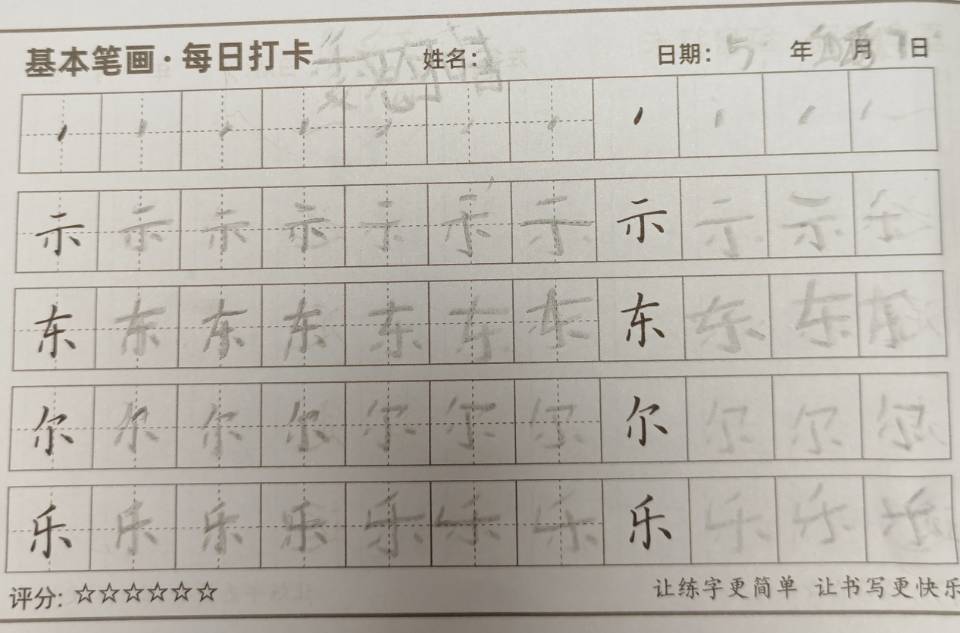 基本笔画·每日打卡 姓名: 日期: 5 年 月 日
示 示 示 示 示 示 示 示 示 示 示
东 东 东 东 东 东 东 东 东 东 东
尔 尔 尔 尔 尔 尔 尔 尔 尔 尔 尔
乐 乐 乐 乐 乐 乐 乐 乐 乐 乐 乐
评分: ☆☆☆☆☆☆ 让练字更简单 让书写更快乐